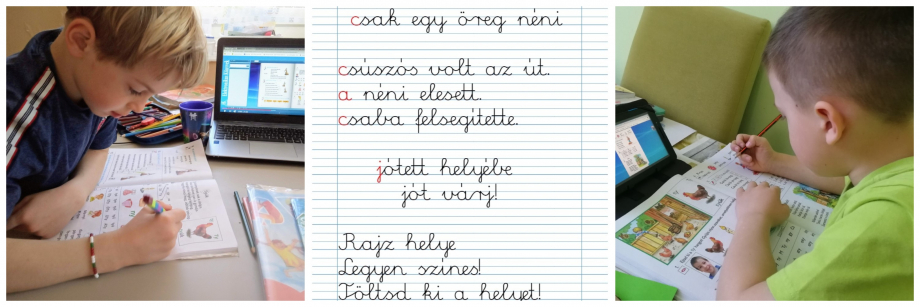 csak egy öreg néni
csúszós volt az út.
a néni elesett.
csaba felsegítette.
jótett helyébe
jót várj!
Rajz helye
Legyen színes!
Töltsd ki a helyet!